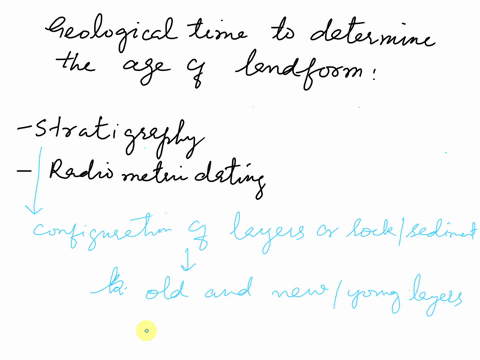 Geological time to determine
the age of landform:
- Stratigraphy
- Radiometric dating
configuration of layers or rock/sediment
old and new/young layers